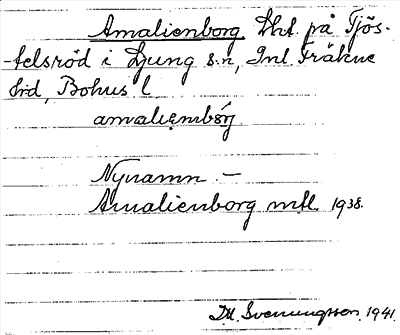 Amalienborg Lht. på Tjös-
-telsröd i Ljung s:n, Inl. Fräkne
hd, Bohus l
amaliembórj.
Nynamn. —
Amalienborg mtl. 1938.
D.H. Svenungsson. 1941.